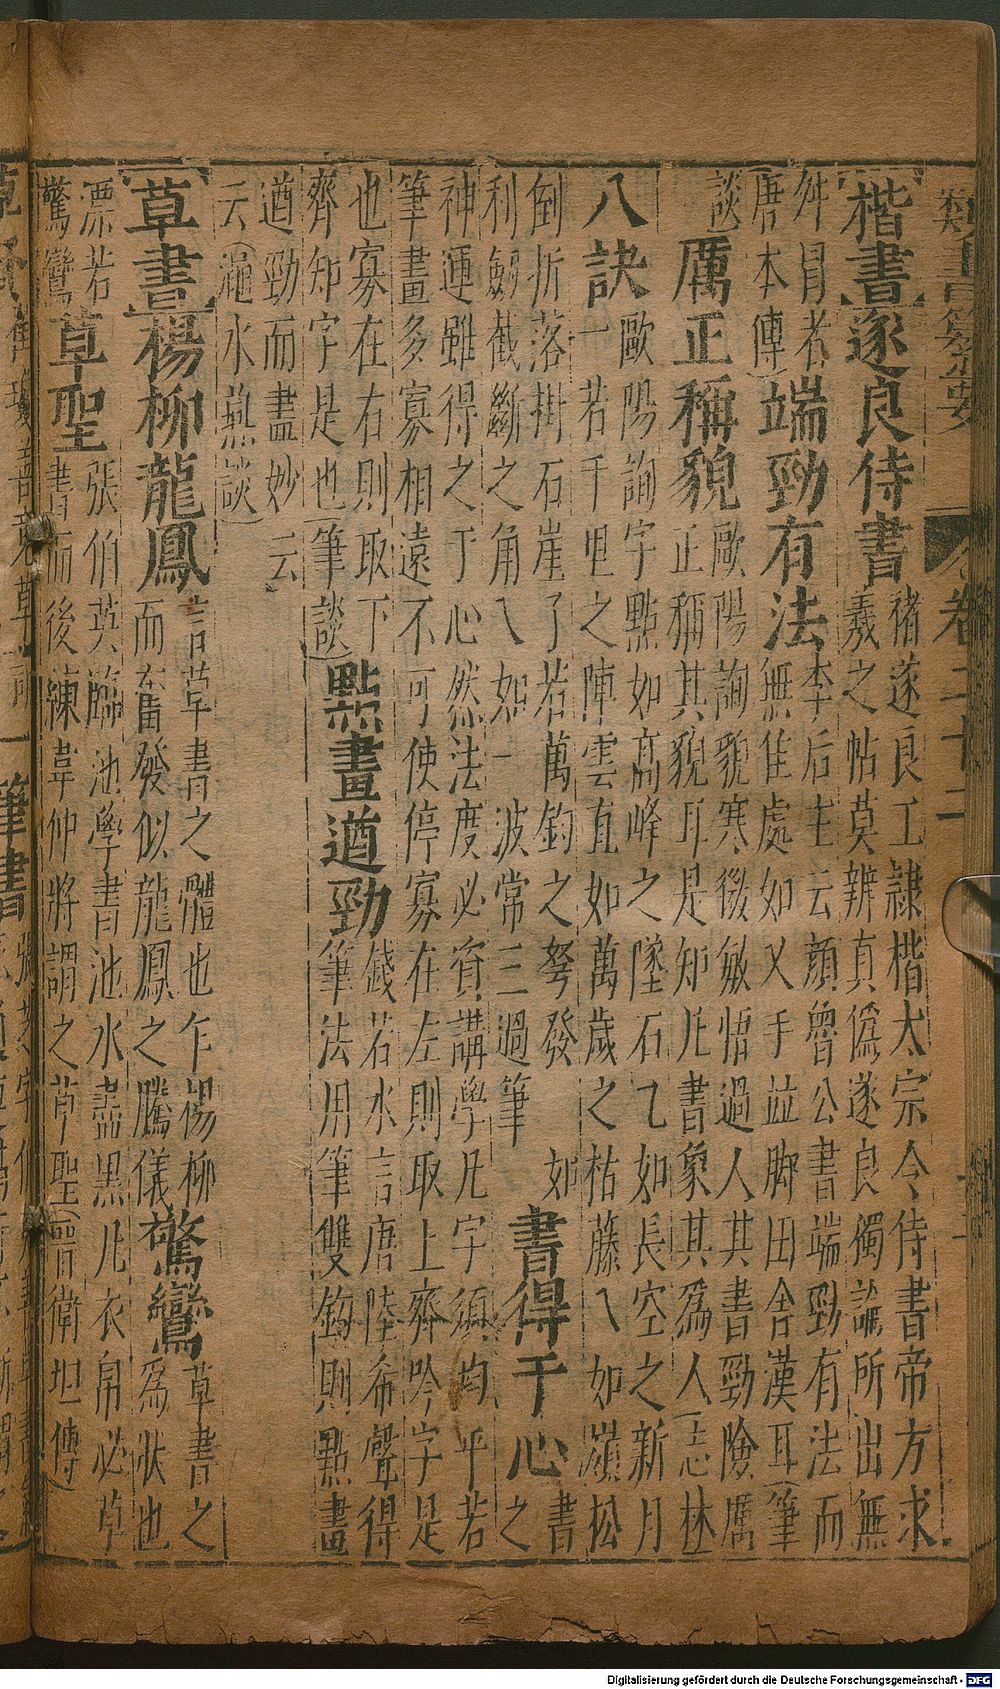 類書纂要 卷二十二
楷書 遂良侍書 褚遂良工隸楷太宗令侍書帝方求
羲之帖莫辨真僞遂良獨論所出無
舛冒者
唐本傳 端勁有法 李后主云顏魯公書端勁有法而
無佳處如叉手並脚田舍漢耳筆
談 厲正稱貌 歐陽詢貌寒寢敏悟過人其書勁險厲
正稱其貌耳是知凡書象其為人志林
八訣 歐陽詢字點如高峰之墜石乙如長空之新月
一若千里之陣雲直如萬歲之枯藤乀如嶺松
倒折落掛石崖了若萬鈞之弩發 如
利劒截斷之角乀如一波常三過筆 書得于心 書之
神運雖得之于心然法度必資講學凡字須均平若
筆畫多寡相遠不可使停寡在左則取上齊吟字是
也寡在右則取下
齊知字是也筆談 點畫遒勁 錢若水言唐陸希聲得
筆法用筆雙鉤則點畫
遒勁而盡妙云
云澠水燕談
草書 楊柳龍鳳 言草書之體也乍楊柳
而奮發似龍鳳之騰儀 驚鸞 草書之
為狀也
漂若
驚鸞 草聖 張伯英臨池學書池水盡黑凡衣帛必草
書而後練韋仲將謂之草聖晉衛坦傳
Digitalisierung gefördert durch die Deutsche Forschungsgemeinschaft - DFG